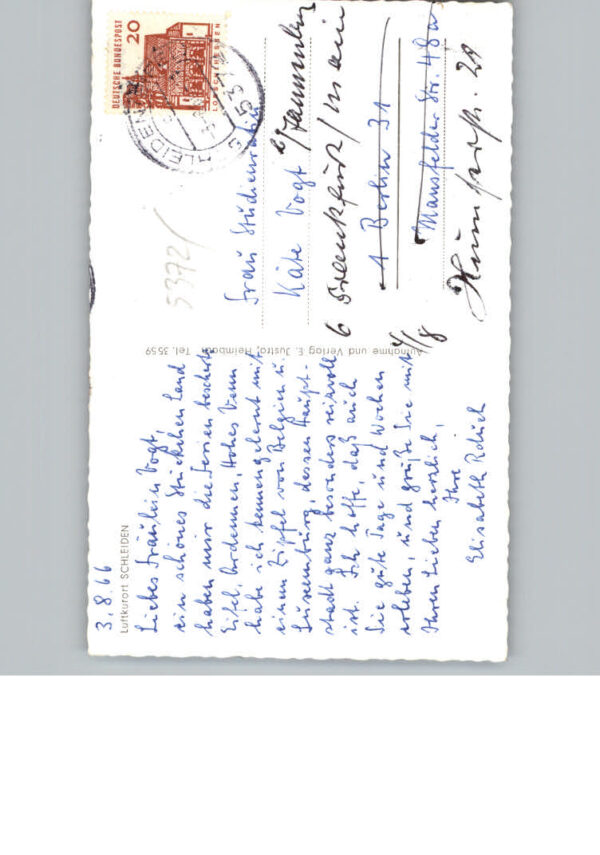 3.8.66
Luftkurort SCHLEIDEN
Liebes Fräulein Vogt,
ein schönes Stückchen Land
haben mir die Ferien beschert.
Eifel, Ardennen, Hohes Venn
habe ich kennengelernt mit
einem Zipfel von Belgien u.
Luxemburg, dessen Haupt-
stadt ganz besonders reizvoll
ist. Ich hoffe, daß auch
Sie gute Tage und Wochen
erleben, und grüße Sie mit
Ihren Lieben herzlich,
Ihre
Elisabeth
Aufnahme und Verlag E. Justra, Heimbach Tel. 3559
DEUTSCHE BUNDESPOST
20
LORSCH/HESSEN
SCHLEIDEN
5372/
Frau Studienrätin
Käte Vogt
6 Frankfurt/Main
1 Berlin 31
Mansfelder Str. 48